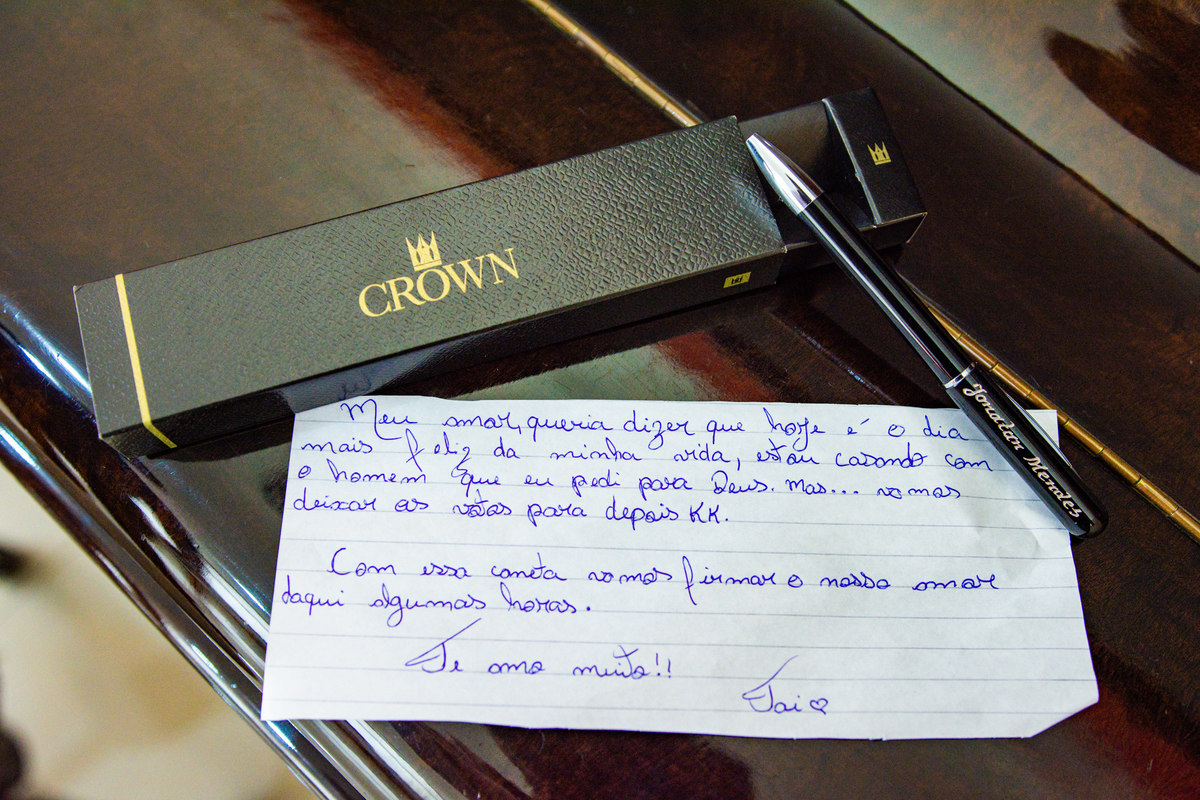 CROWN
Jonatan Meireles
Meu amor, queria dizer que hoje é o dia
mais feliz da minha vida, estou casando com
o homem que eu pedi para Deus. Mas... vamos
deixar os votos para depois KK.
Com essa caneta vamos firmar o nosso amor
daqui algumas horas.
Te amo muito!!
Tai♡